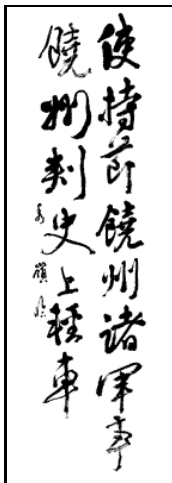 使持節饒州諸軍事
饒州刺史上輕車